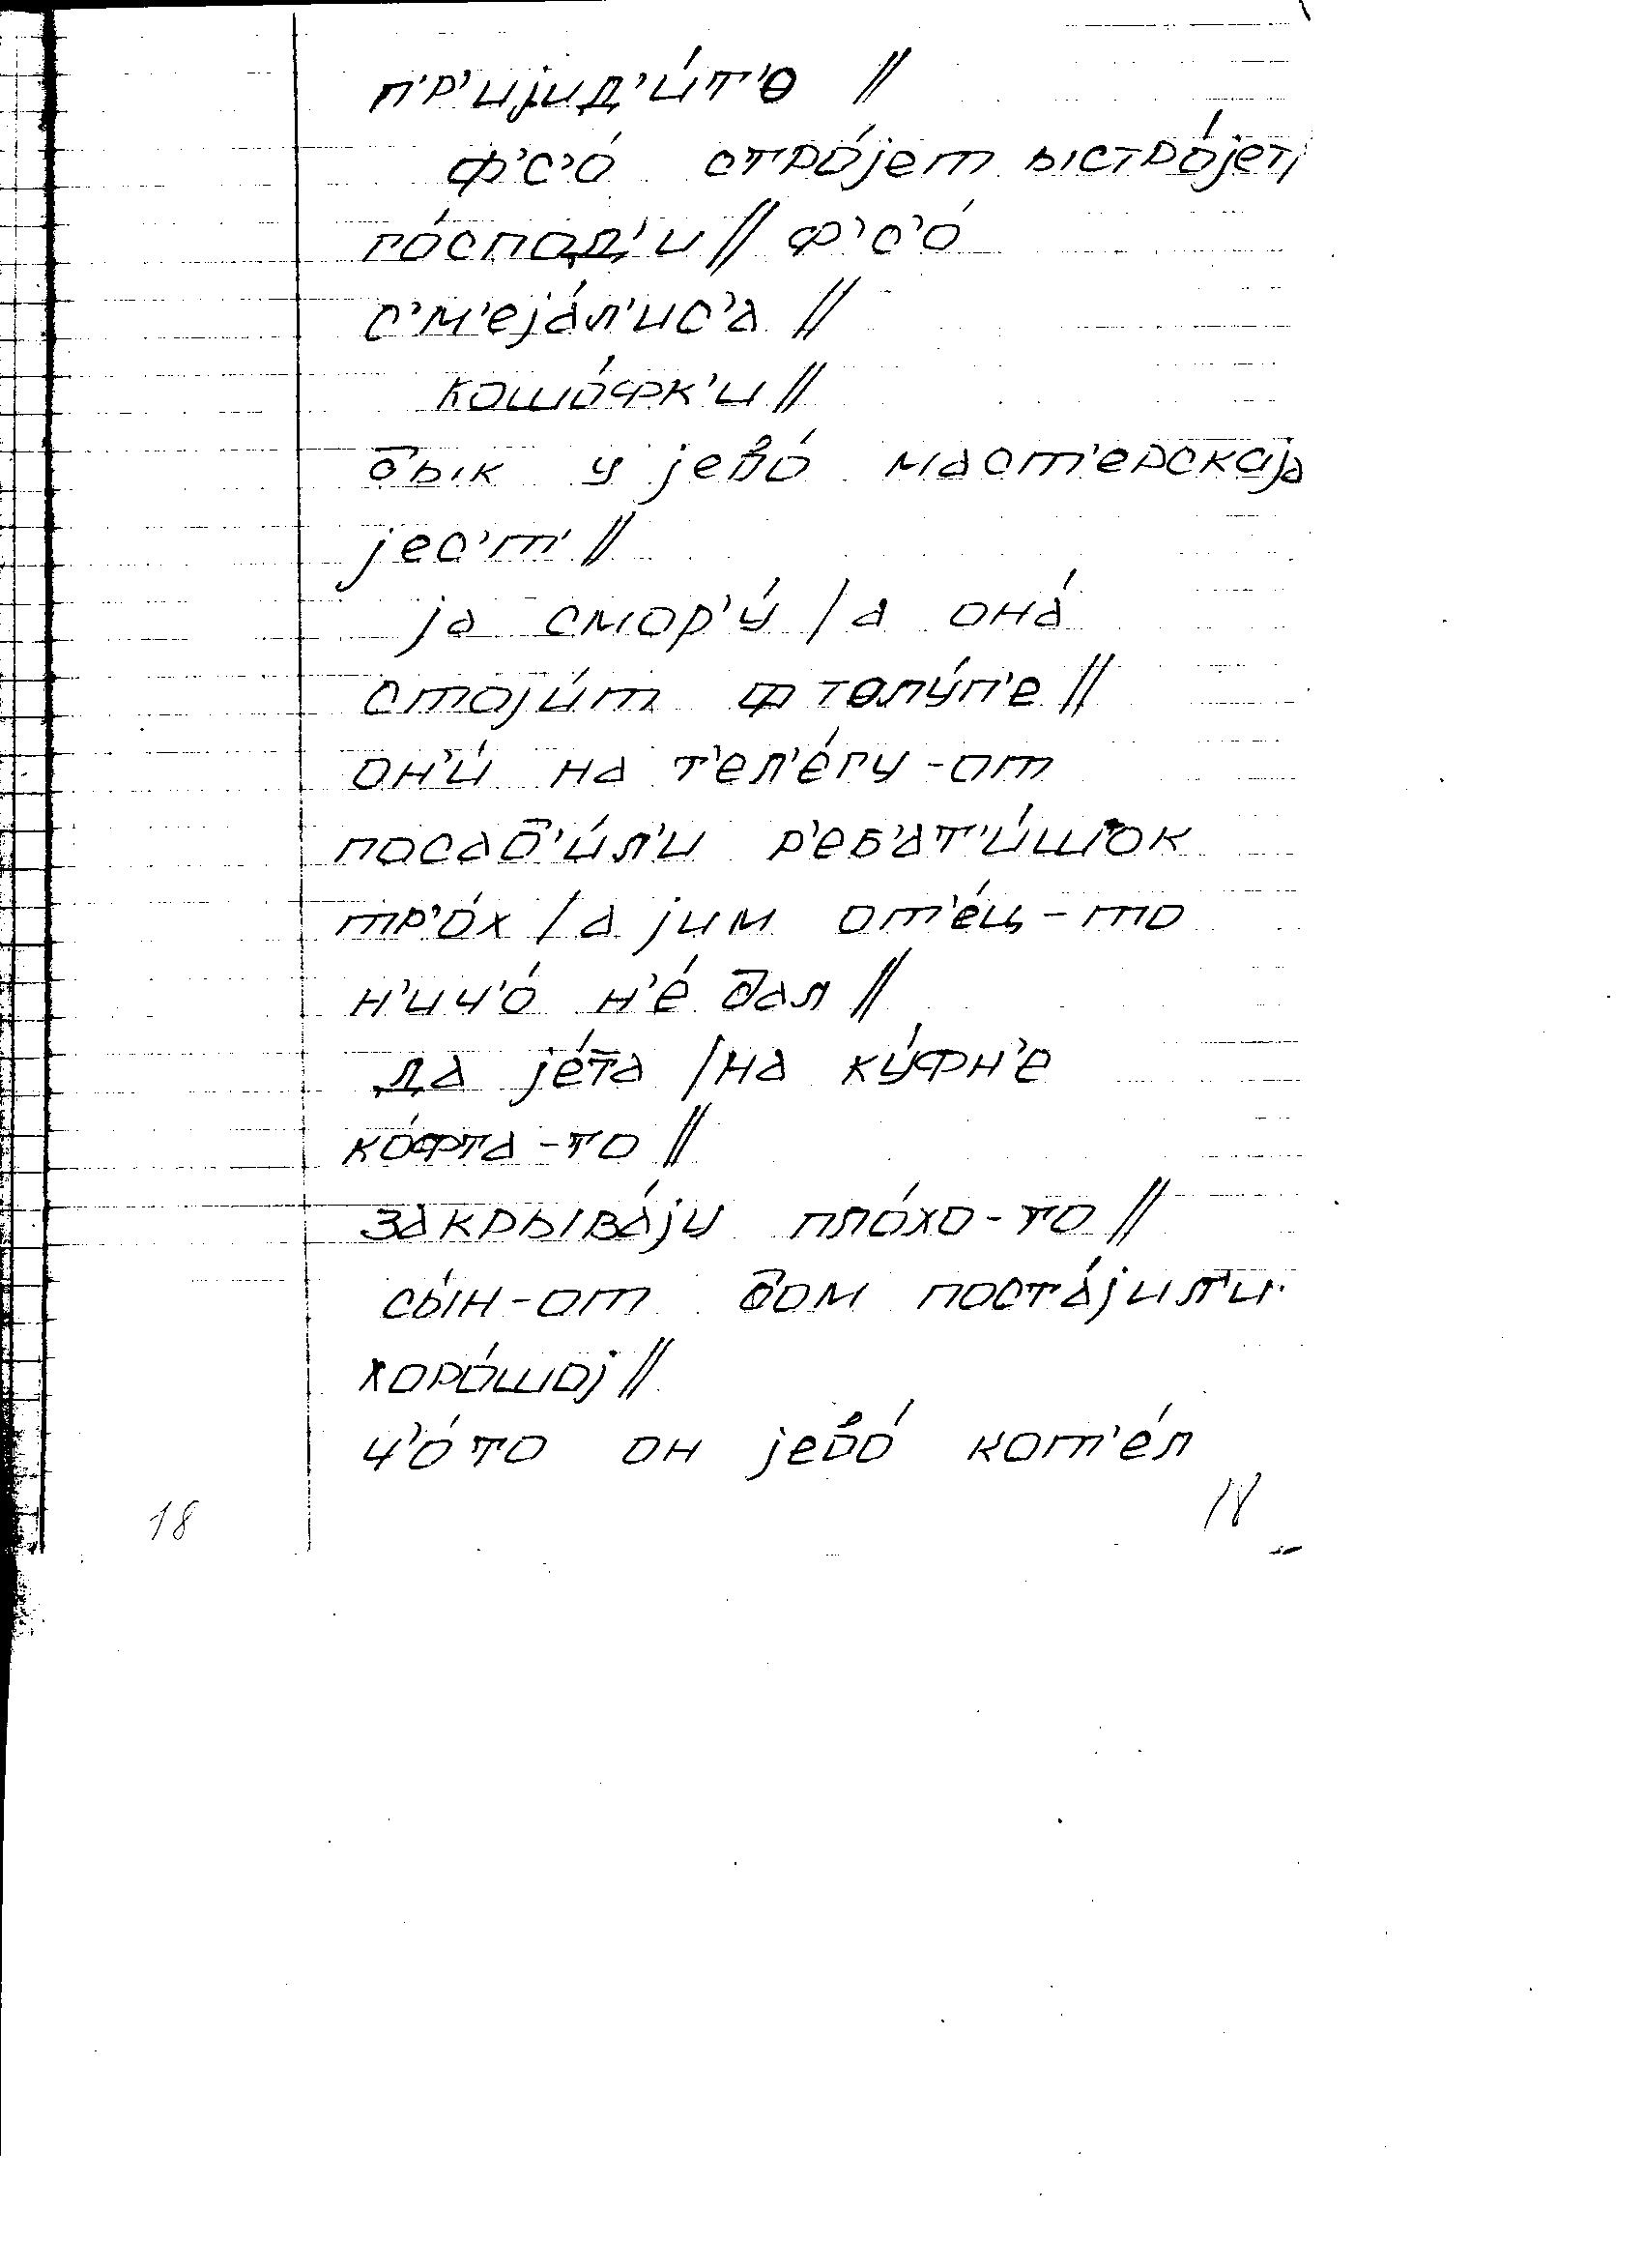 п'р'иjид'и́т'о //
ф'с'о́ стро́jет ыстро́jет/
го́спод'и // ф'с'о́
с'м'еjа́л'ис'а //
кошо́фк'и //
бык у jево́ маст'ерскаjа
jес'т' //
jа смор'у́ / а она́
стоjи́т ф толу́п'е //
он'и́ на т'ел'е́гу-от
посад'и́л'и р'еб'ат'и́шок
тр'о́х / а jим от'е́ц-то
н'ич'о́ н'е́ дал //
да jе́та / на ку́фн'е
ко́фта-то //
закрыва́jу пло́хо-то //
сы́н-от дом поста́jил'и
хоро́шоj //
ч'о́то он jево́ кот'е́л
18 18